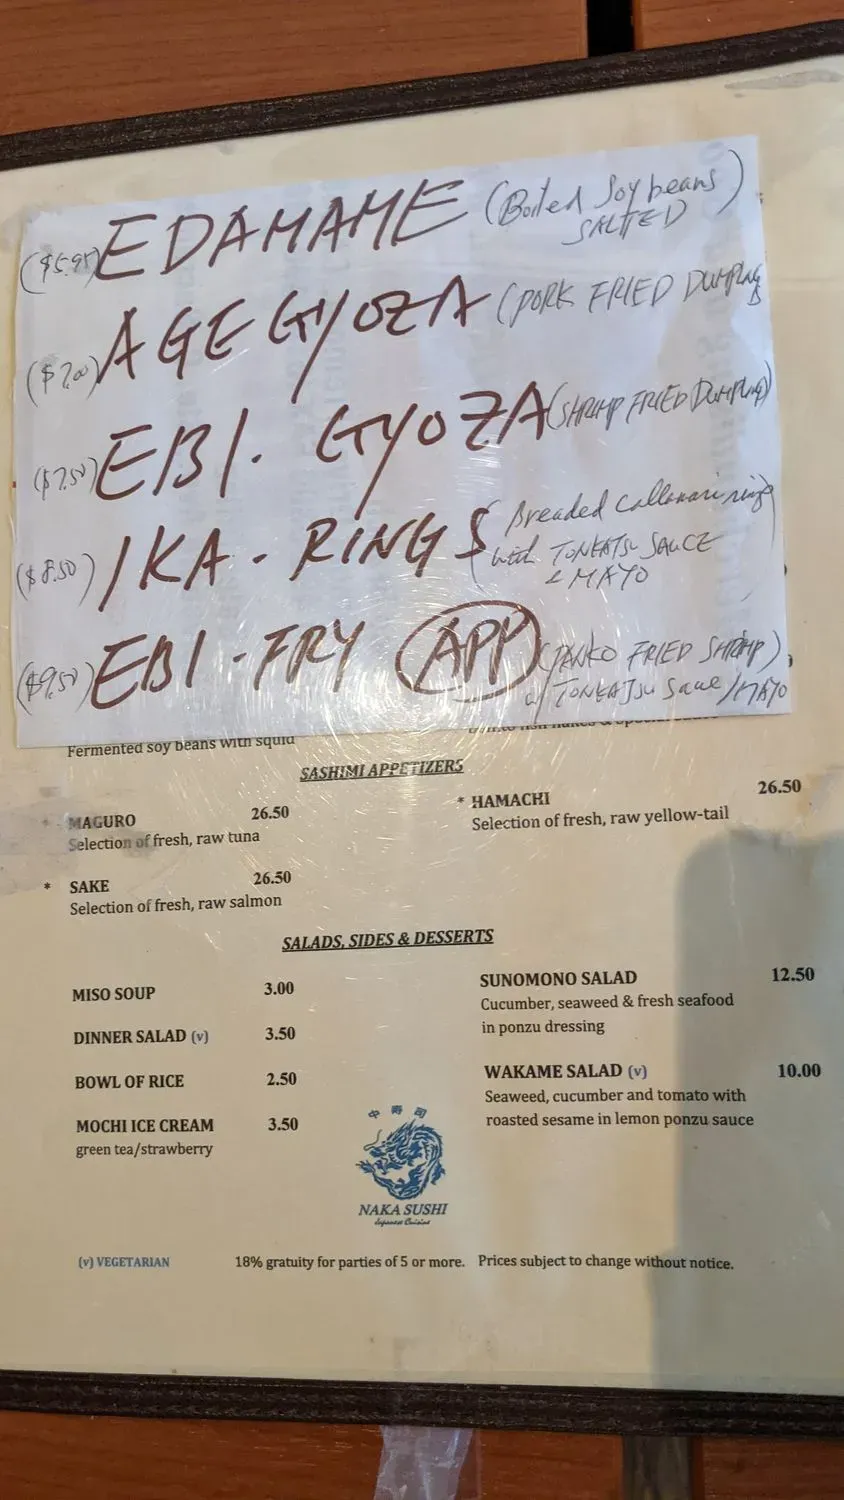 ($5.95) EDAMAME (Boiled Soybeans)
SALTED
($7.00) AGE GYOZA (PORK FRIED DUMPLING
($7.50) EBI. GYOZA (SHRIMP FRIED DUMPLING)
($8.50) IKA - RINGS (Breaded Callamari ring
with TONKATSU SAUCE
& MAYO
($9.50) EBI - FRY APP (PANKO FRIED SHRIMP)
w/ TONKATSU Sauce/MAYO
Fermented soy beans with squid
SASHIMI APPETIZERS
* MAGURO 26.50
Selection of fresh, raw tuna
* HAMACHI 26.50
Selection of fresh, raw yellow-tail
* SAKE 26.50
Selection of fresh, raw salmon
SALADS, SIDES & DESSERTS
MISO SOUP 3.00
DINNER SALAD (v) 3.50
BOWL OF RICE 2.50
MOCHI ICE CREAM 3.50
green tea/strawberry
SUNOMONO SALAD 12.50
Cucumber, seaweed & fresh seafood
in ponzu dressing
WAKAME SALAD (v) 10.00
Seaweed, cucumber and tomato with
roasted sesame in lemon ponzu sauce
中寿司
NAKA SUSHI
Japanese Cuisine
(v) VEGETARIAN 18% gratuity for parties of 5 or more. Prices subject to change without notice.